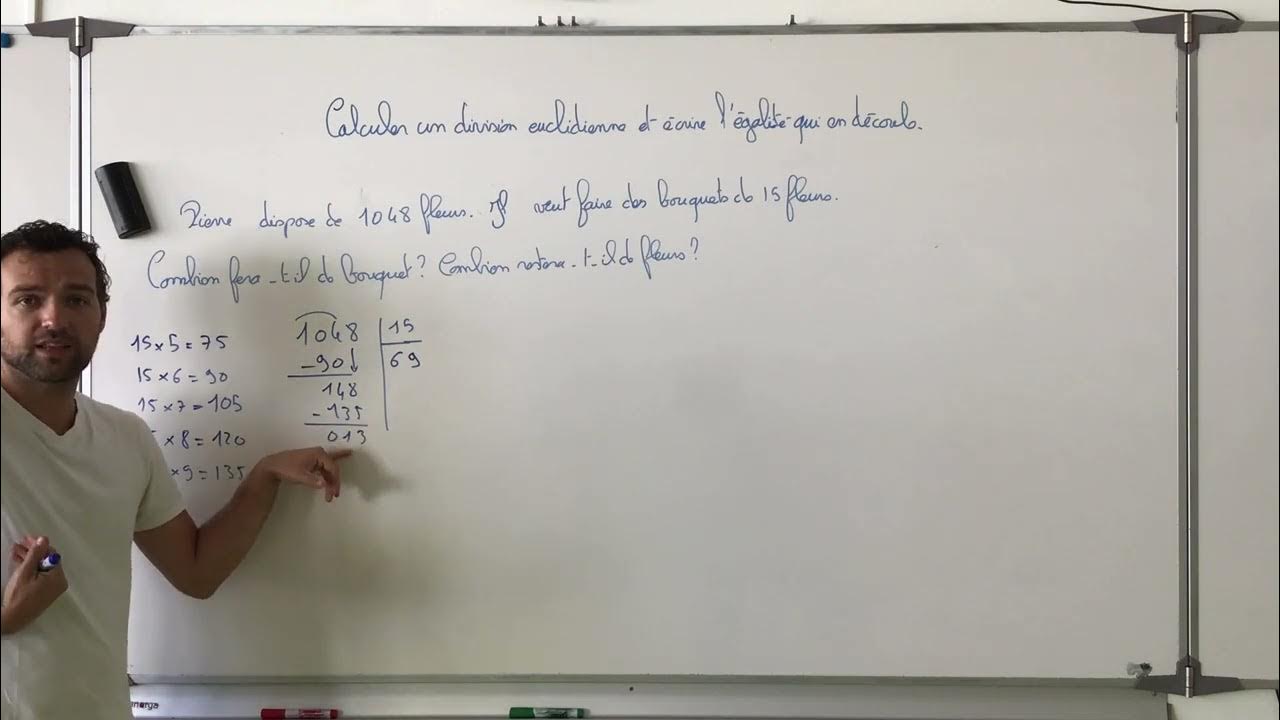 Calculer un division euclidienne et écrire l'égalité qui en découle.
Pierre dispose de 1048 fleurs. Il veut faire des bouquets de 15 fleurs.
Combien fera-t-il de bouquet? Combien restera-t-il de fleurs?
15×5=75
15×6=90
15×7=105
×8=120
×9=135
1048 15
-90 69
148
-135
013